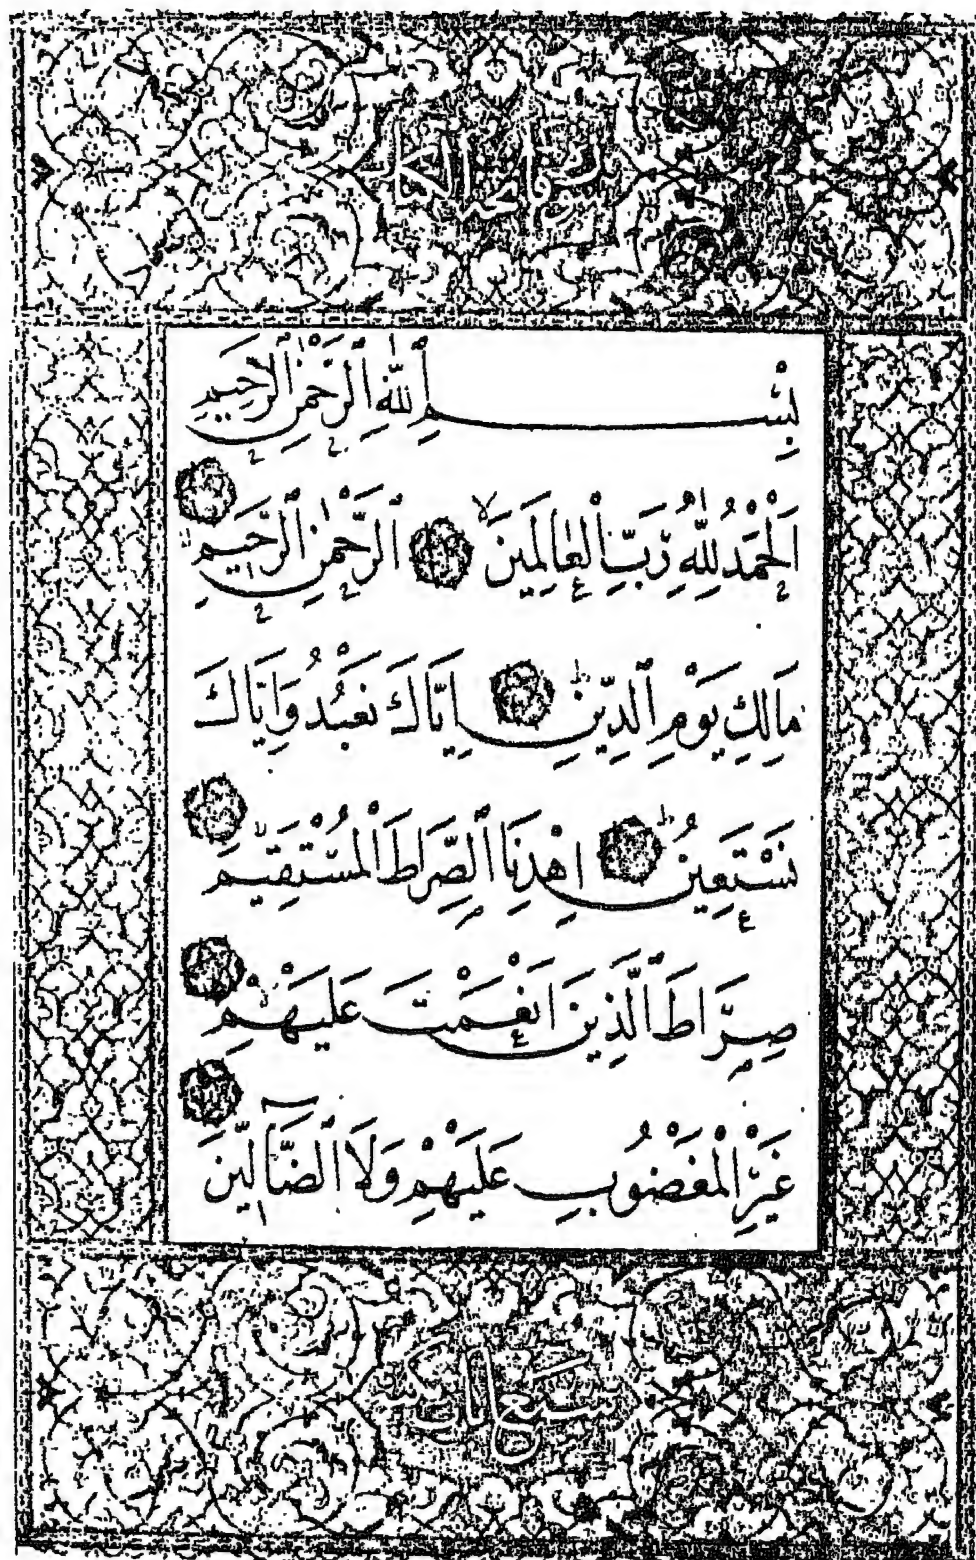 سورة فاتحة الكتاب
بِسْمِ ٱللّٰهِ ٱلرَّحْمٰنِ ٱلرَّحِيمِ
اَلْحَمْدُ لِلّٰهِ رَبِّ ٱلْعَالَمِينَ ٱلرَّحْمٰنِ ٱلرَّحِيمِ
مَالِكِ يَوْمِ ٱلدِّينِ اِيَّاكَ نَعْبُدُ وَاِيَّاكَ
نَسْتَعِينُ اِهْدِنَا ٱلصِّرَاطَ ٱلْمُسْتَقِيمَ
صِرَاطَ ٱلَّذِينَ اَنْعَمْتَ عَلَيْهِمْ
غَيْرِ ٱلْمَغْضُوبِ عَلَيْهِمْ وَلَا ٱلضَّآلِّينَ
سبع آيات